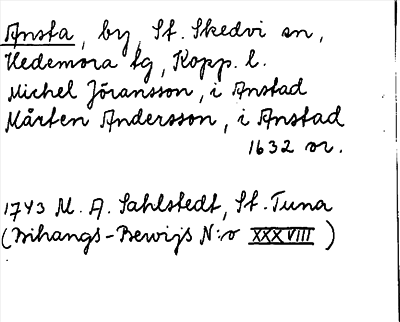 Ansta, by, St. Skedvi sn,
Hedemora tg, Kopp. l.
Michel Jöransson, i Anstad
Mårten Andersson, i Anstad
1632 or.
1743 M. A. Sahlstedt, St. Tuna
(Bihangs-Bewijs N:o XXXVIII)